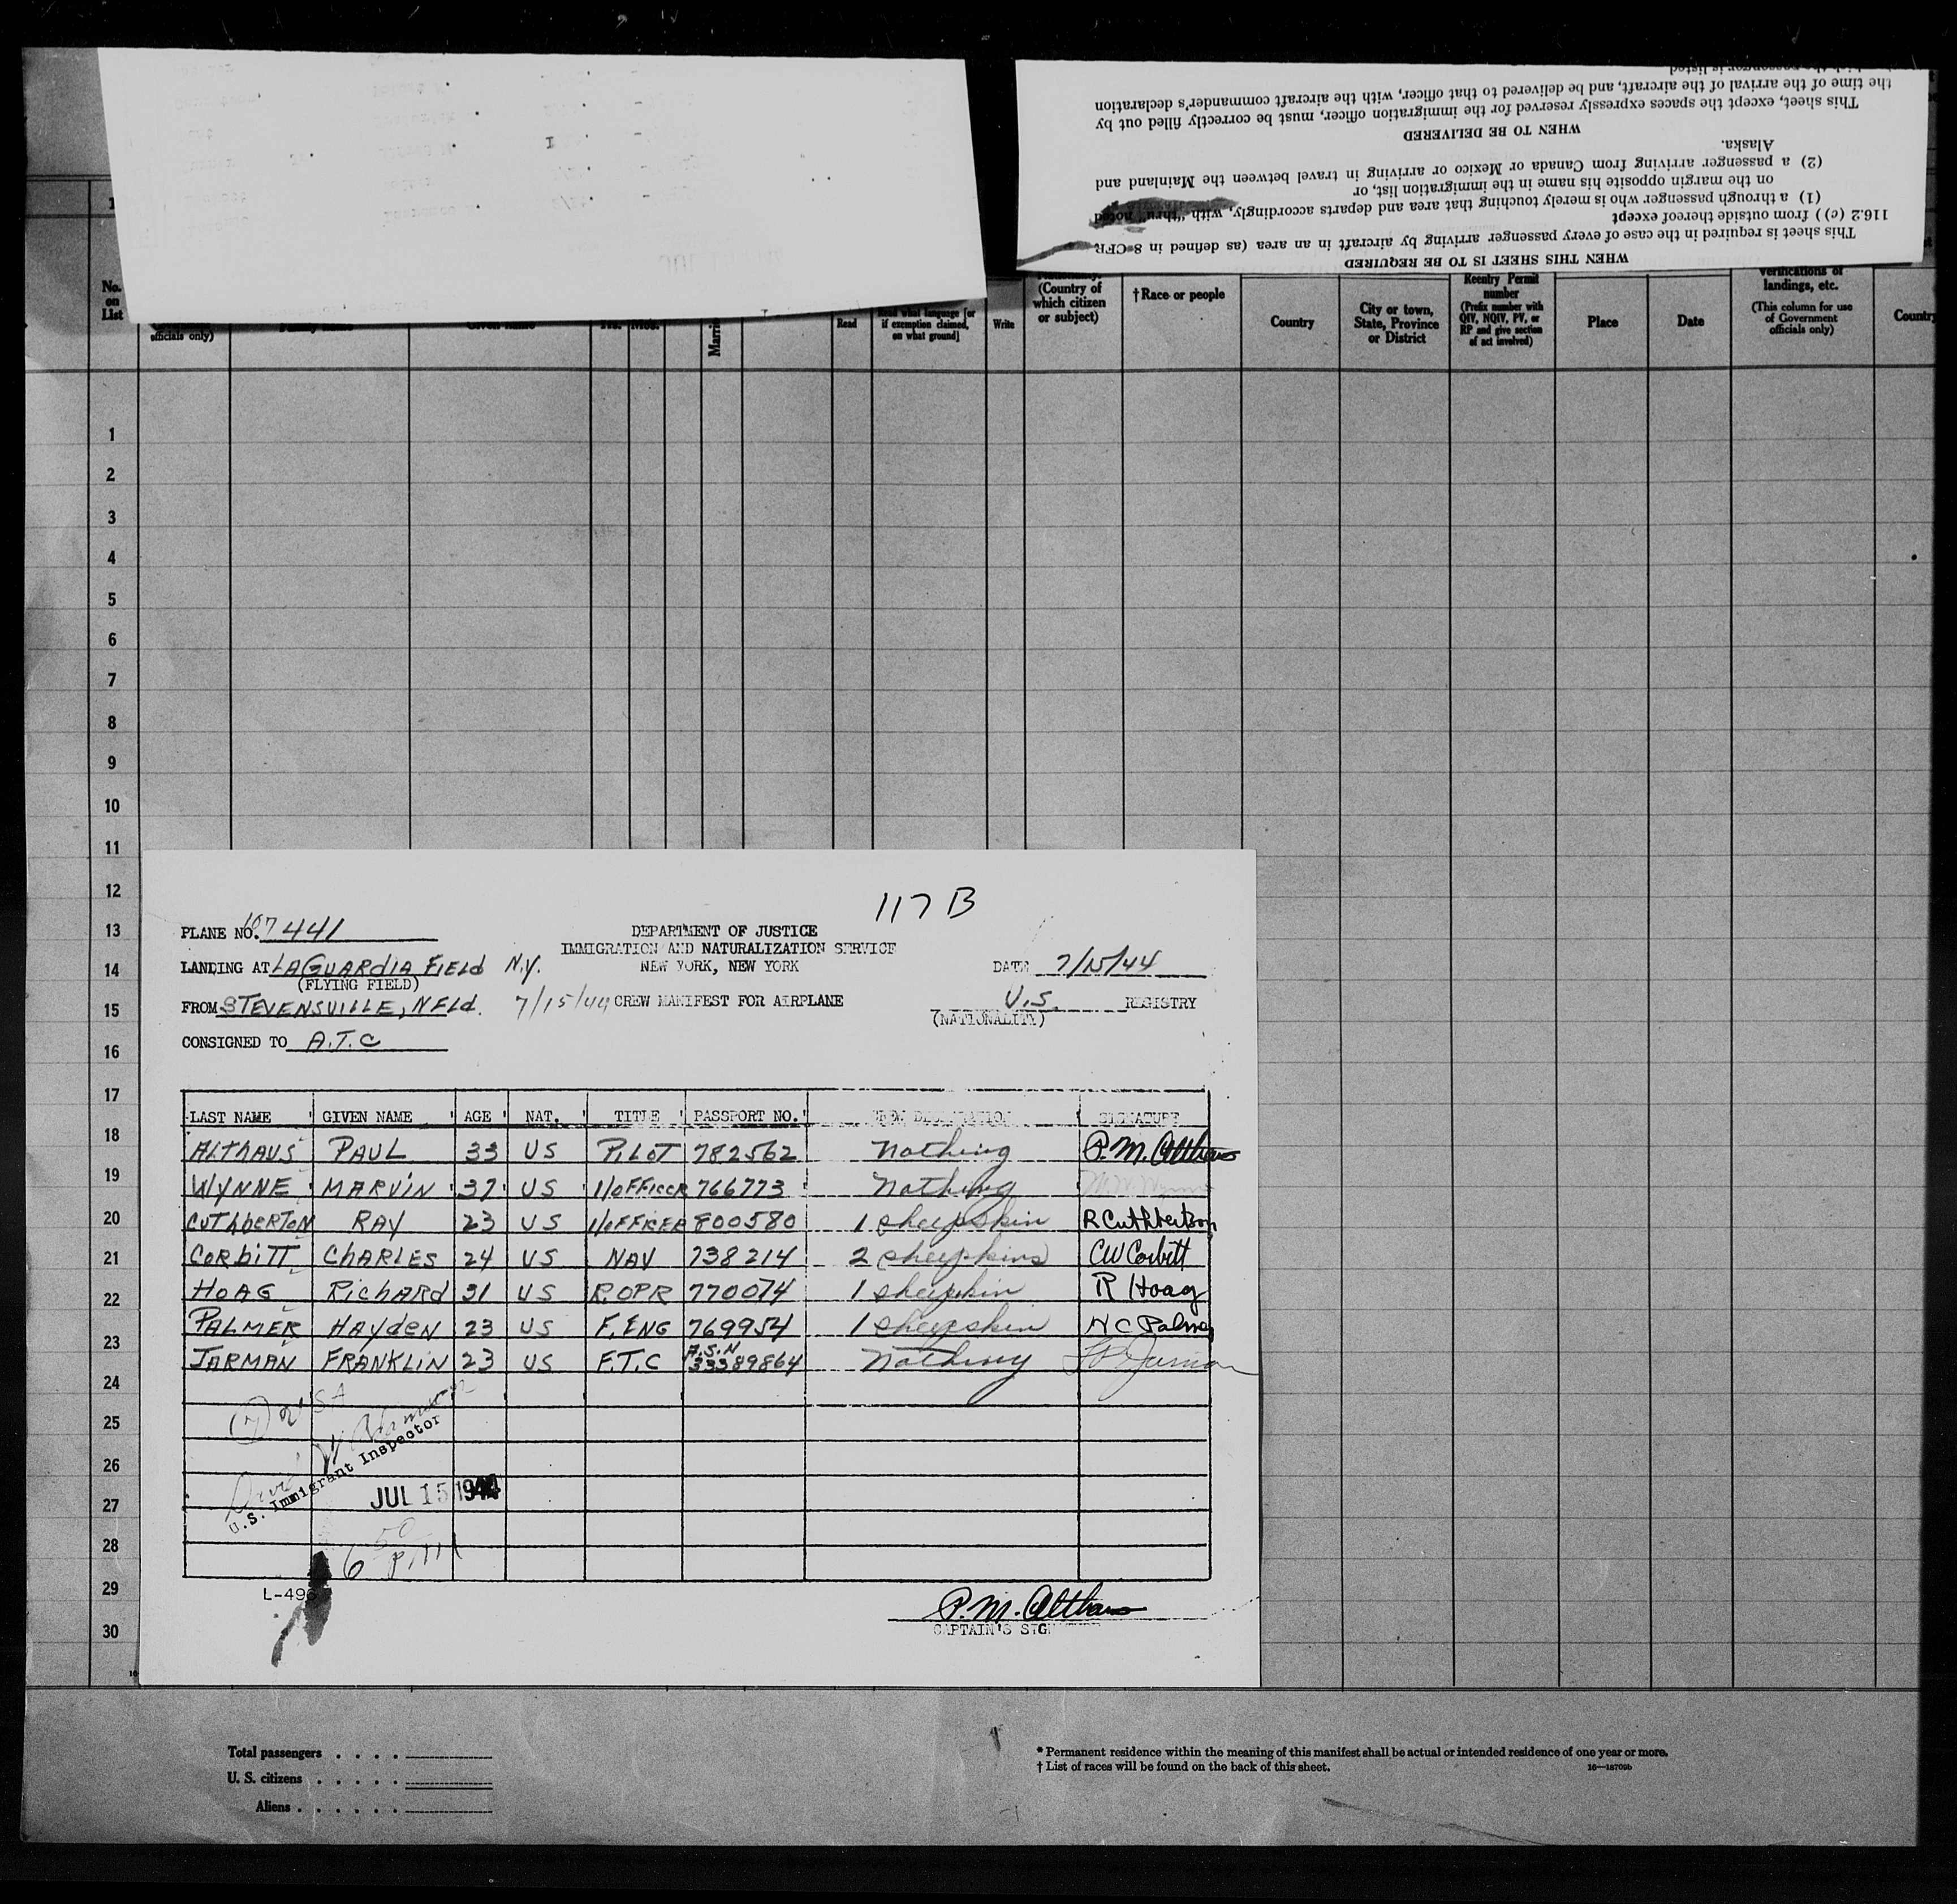 which the passenger is listed
the time of the arrival of the aircraft, and be delivered to that officer, with the aircraft commander's declaration
This sheet, except the spaces expressly reserved for the immigration officer, must be correctly filled out by
WHEN TO BE DELIVERED
Alaska.
(2) a passenger arriving from Canada or Mexico or arriving in travel between the Mainland and
on the margin opposite his name in the immigration list, or
(1) a through passenger who is merely touching that area and departs accordingly, with "thru" noted
116.2 (c)) from outside thereof except
This sheet is required in the case of every passenger arriving by aircraft in an area (as defined in 8 CFR
WHEN THIS SHEET IS TO BE REQUIRED
No.
on
List
officials only)
Family name
Given name
Yrs. Mos.
Read
Read what language [or
if exemption claimed,
on what ground]
Write
(Country of
which citizen
or subject)
† Race or people
Country
City or town,
State, Province
or District
Reentry Permit
number
(Prefix number with
QIV, NQIV, PV, or
RP and give section
of act involved)
Place
Date
Verifications of
landings, etc.
(This column for use
of Government
officials only)
Country
1
2
3
4
5
6
7
8
9
10
11
12
13
14
15
16
17
18
19
20
21
22
23
24
25
26
27
28
29
30
117 B
PLANE NO. 107441
DEPARTMENT OF JUSTICE
IMMIGRATION AND NATURALIZATION SERVICE
NEW YORK, NEW YORK
LANDING AT LAGUARDIA FIELD N.Y.
(FLYING FIELD)
DATE 7/15/44
FROM STEVENSVILLE, NFLD. 7/15/44 CREW MANIFEST FOR AIRPLANE U.S. REGISTRY
(NATIONALITY)
CONSIGNED TO A.T.C
LAST NAME GIVEN NAME AGE NAT. TITLE PASSPORT NO. CREW DECLARATION SIGNATURE
ALTHAUS PAUL 33 US PILOT 782562 Nothing P.M. Althaus
WYNNE MARVIN 37 US 1/OFFICER 766773 Nothing
CUTHBERTON RAY 23 US 1/OFFICER 800580 1 sheepskin R Cuthbertson
CORBITT CHARLES 24 US NAV 738214 2 sheepskins CW Corbitt
HOAG RICHARD 31 US R.OPR 770074 1 sheepskin R Hoag
PALMER HAYDEN 23 US F.ENG 769954 1 sheepskin H C Palmer
JARMAN FRANKLIN 23 US F.T.C A.S.N 33389864 Nothing Jarman
(7) USA
U.S. Immigrant Inspector
JUL 15 1944
6 50 P.M
L-496
P.M. Althaus
CAPTAIN'S SIGNATURE
Total passengers . . . .
U. S. citizens . . . . .
Aliens . . . . . .
* Permanent residence within the meaning of this manifest shall be actual or intended residence of one year or more.
† List of races will be found on the back of this sheet.
16—18709b